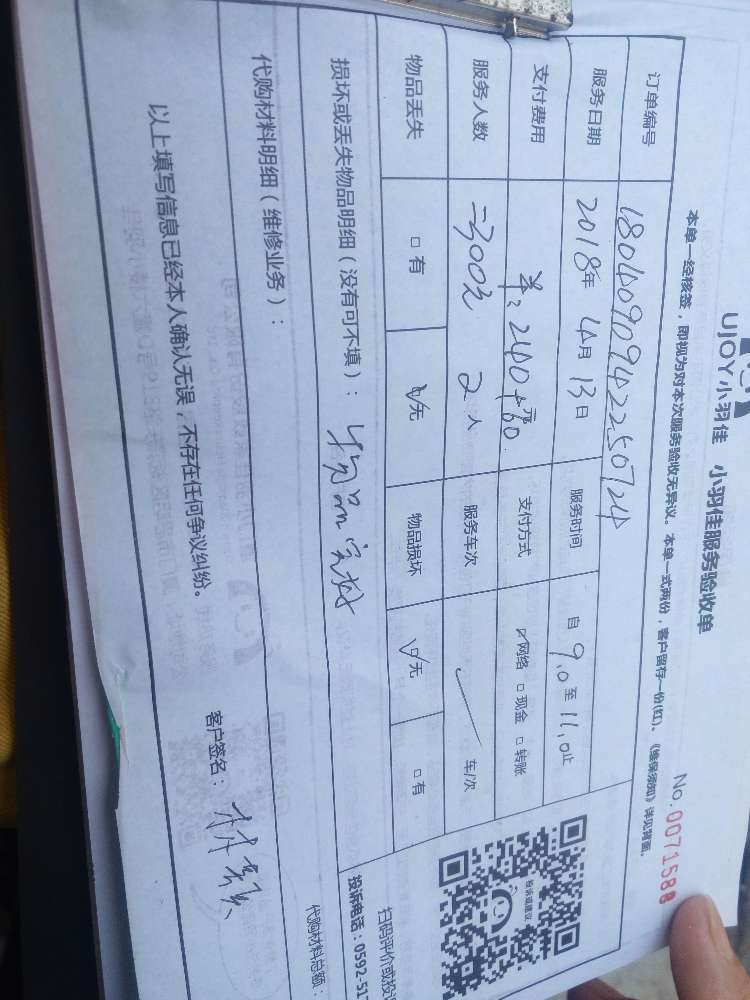 UJOY小羽佳 小羽佳服务验收单
No.0071588
本单一经核签，即视为对本次服务验收无异议。本单一式两份，客户留存一份(红)。《维保须知》详见背面。
订单编号 180409094225072
服务日期 2018年 4月 13日 服务时间 自 9.0 至 11.0止
支付费用 240+60 支付方式 ☑网络 □现金 □转账
=300元
服务人数 2人 服务车次 车/次
物品丢失 □有 ☑无 物品损坏 ☑无 □有
损坏或丢失物品明细（没有可不填）：
扫码评价或投
投诉电话：0592-517
代购材料明细（维修业务）：
代购材料总额：
以上填写信息已经本人确认无误，不存在任何争议纠纷。
客户签名：
投诉或建议